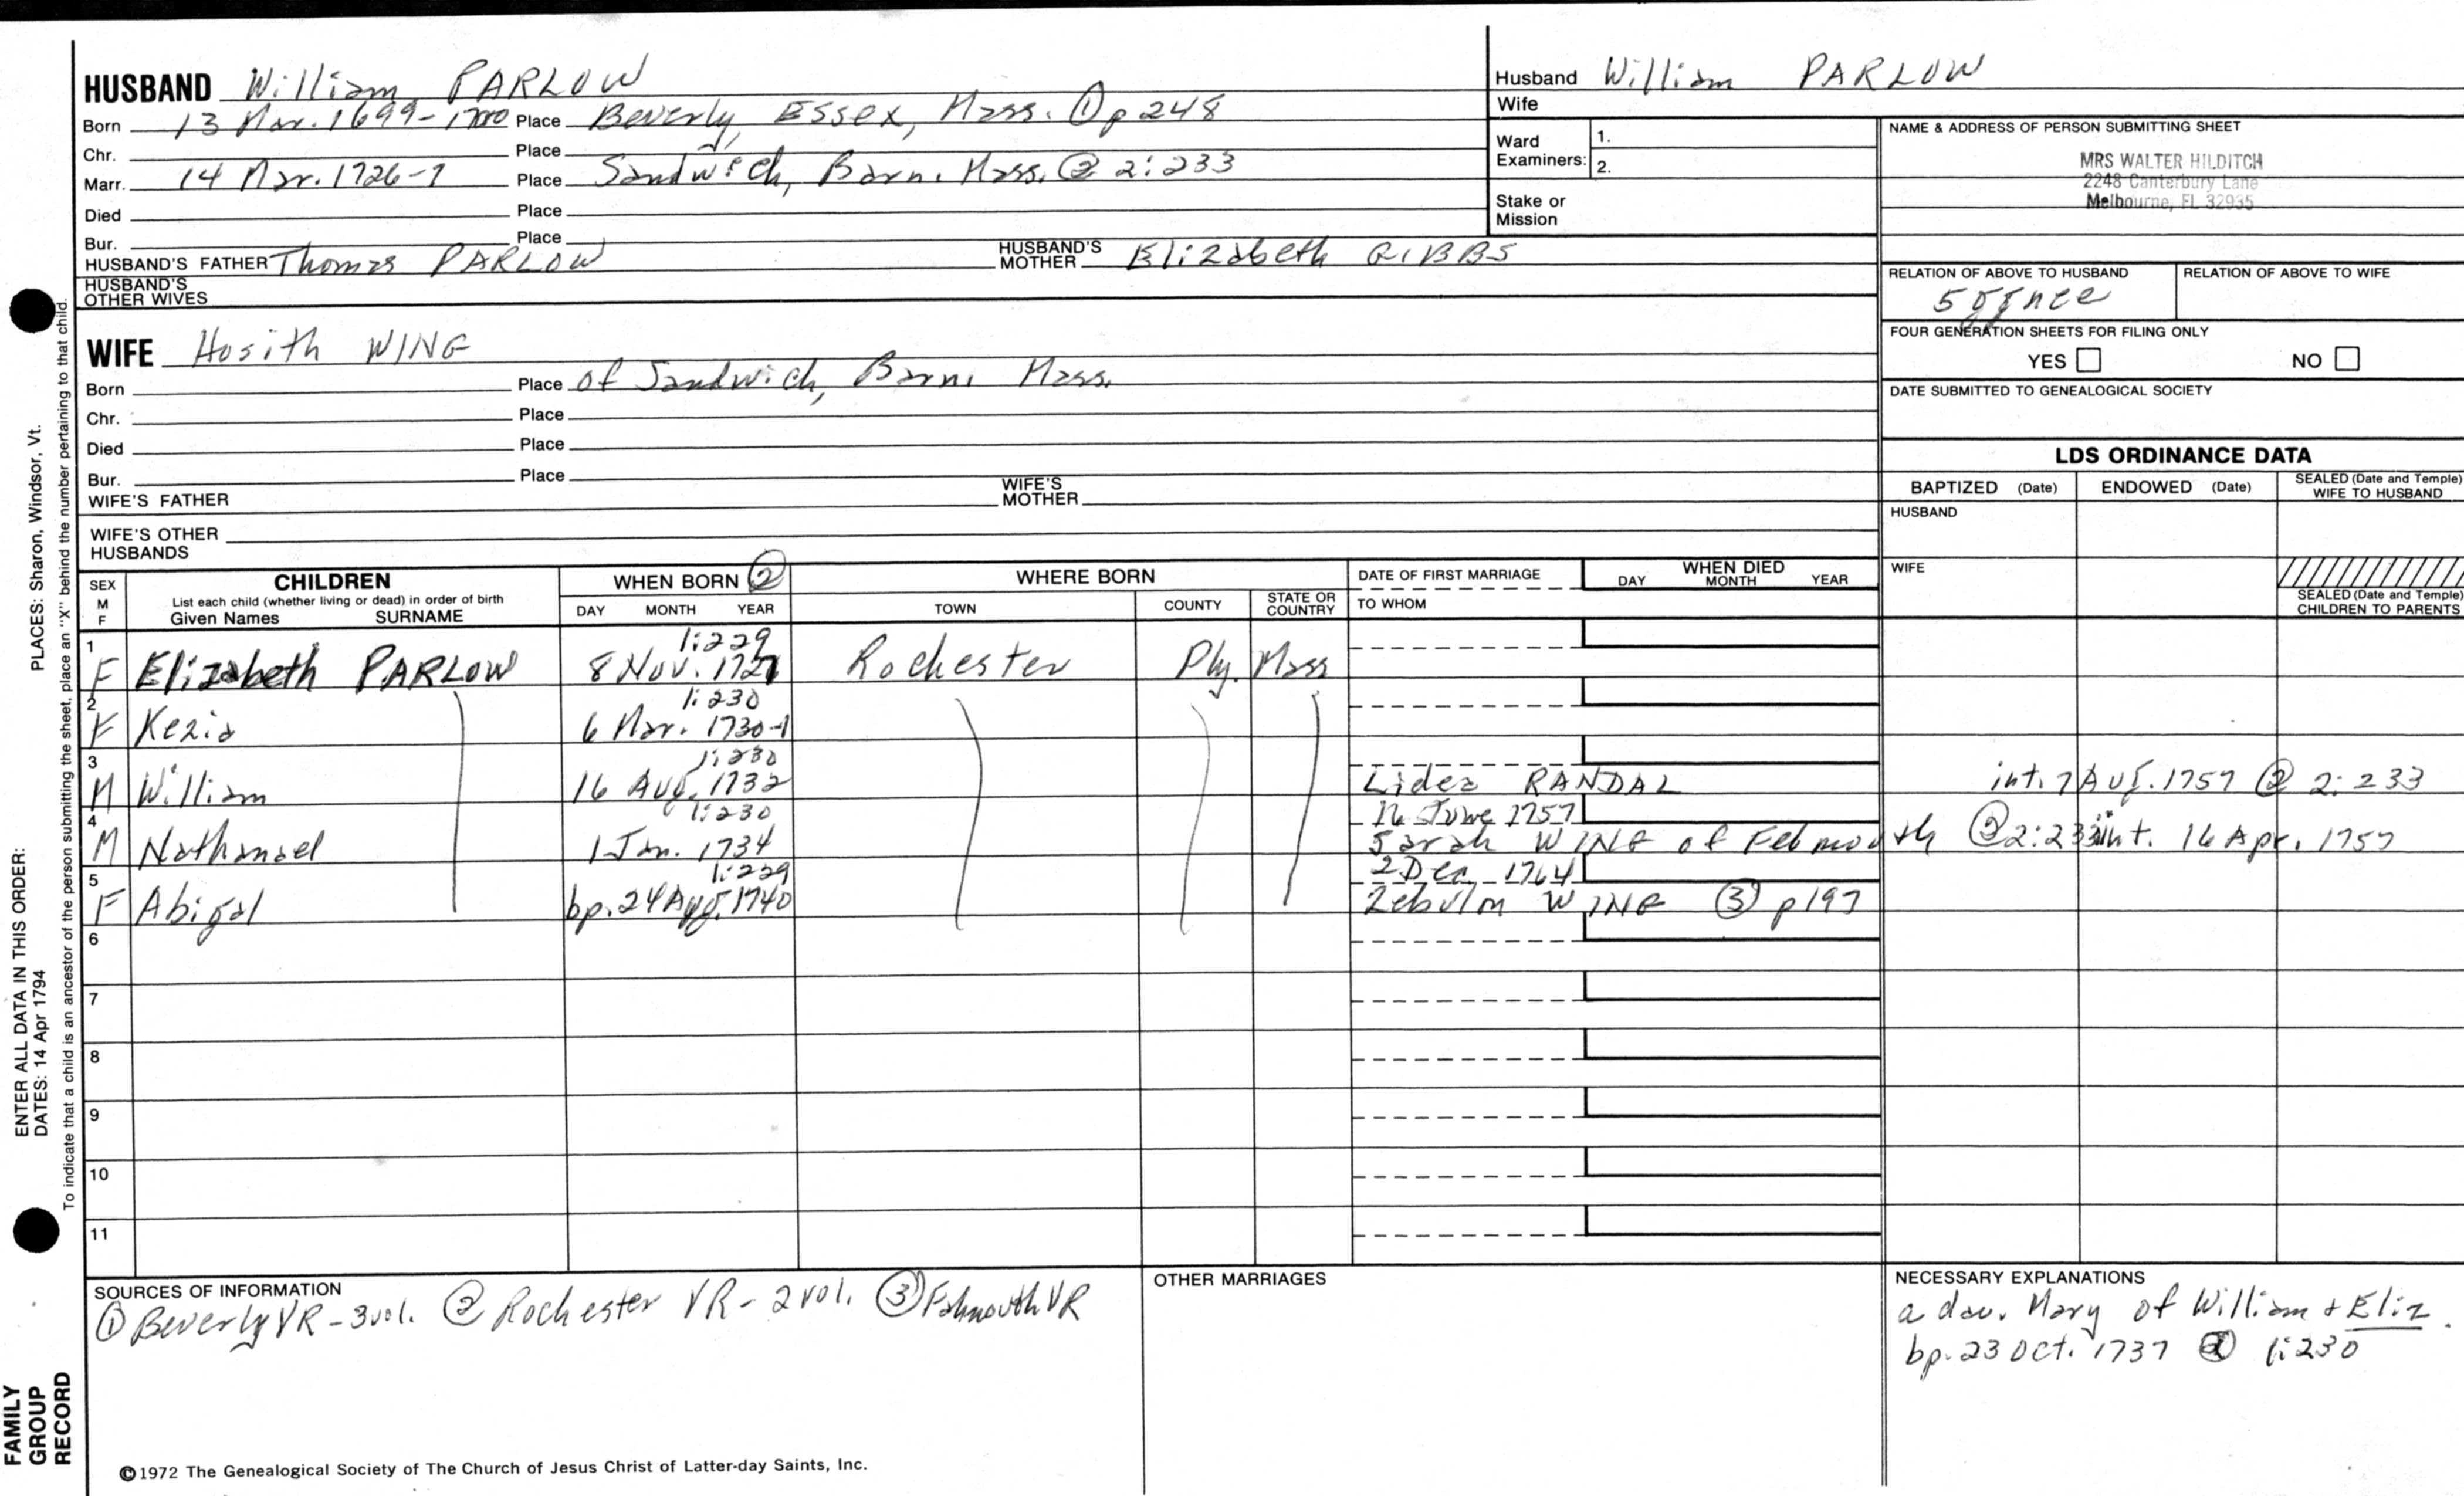 HUSBAND William PARLOW
Born 13 Mar. 1699-1700 Place Beverly, Essex, Mass. ① p 248
Chr. Place
Marr. 14 Mar. 1726-7 Place Sandwich, Barn. Mass. ② 2:233
Died Place
Bur. Place
HUSBAND'S FATHER Thomas PARLOW HUSBAND'S MOTHER Elizabeth GIBBS
HUSBAND'S OTHER WIVES
Husband William PARLOW
Wife
Ward Examiners: 1.
2.
Stake or Mission
NAME & ADDRESS OF PERSON SUBMITTING SHEET
MRS WALTER HILDITCH
2248 Canterbury Lane
Melbourne, FL 32935
RELATION OF ABOVE TO HUSBAND RELATION OF ABOVE TO WIFE
FOUR GENERATION SHEETS FOR FILING ONLY
YES NO
DATE SUBMITTED TO GENEALOGICAL SOCIETY
WIFE Hosith WING
Born Place of Sandwich, Barn. Mass.
Chr. Place
Died Place
Bur. Place
WIFE'S FATHER WIFE'S MOTHER
WIFE'S OTHER HUSBANDS
LDS ORDINANCE DATA
BAPTIZED (Date) ENDOWED (Date) SEALED (Date and Temple) WIFE TO HUSBAND
HUSBAND
WIFE
SEALED (Date and Temple) CHILDREN TO PARENTS
SEX M F
CHILDREN
List each child (whether living or dead) in order of birth
Given Names SURNAME
WHEN BORN ②
DAY MONTH YEAR
WHERE BORN
TOWN COUNTY STATE OR COUNTRY
DATE OF FIRST MARRIAGE
TO WHOM
WHEN DIED
DAY MONTH YEAR
1:229
1 F Elizabeth PARLOW 8 Nov. 1727 Rochester Ply. Mass
1:230
2 F Kezia 6 Mar. 1730-1
1:230
3 M William 16 Aug. 1732 Lidea RANDAL int. 7 Aug. 1757 ② 2:233
1:230 16 June 1757
4 M Nathanael 1 Jan. 1734 Sarah WING of Felmouth ② 2:233 int. 16 Apr. 1757
1:229 2 Dec. 1764
5 F Abigal bp. 24 Aug. 1740 Zebulm WING ③ p197
6
7
8
9
10
11
SOURCES OF INFORMATION
① Beverly VR - 3 vol. ② Rochester VR - 2 vol. ③ Falmouth VR
OTHER MARRIAGES
NECESSARY EXPLANATIONS
a dau. Mary of William & Eliz.
bp. 23 Oct. 1737 ② 1:230
©1972 The Genealogical Society of The Church of Jesus Christ of Latter-day Saints, Inc.
FAMILY GROUP RECORD
ENTER ALL DATA IN THIS ORDER:
DATES: 14 Apr 1794
PLACES: Sharon, Windsor, Vt.
To indicate that a child is an ancestor of the person submitting the sheet, place an "X" behind the number pertaining to that child.